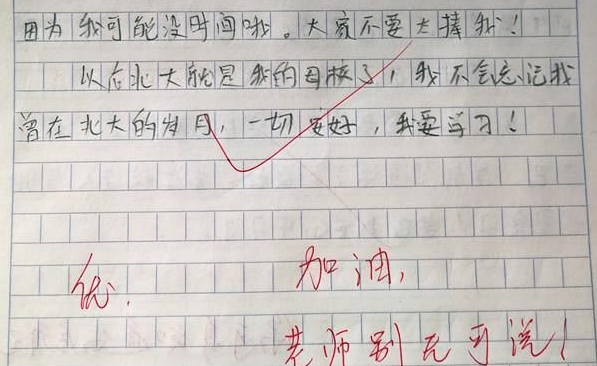 因为我可能没时间哦。大家不要太捧我！
以后北大就是我的母校了，我不会忘记我
曾在北大的岁月，一切安好，我要学习！
优.
加油,
老师别无可说！